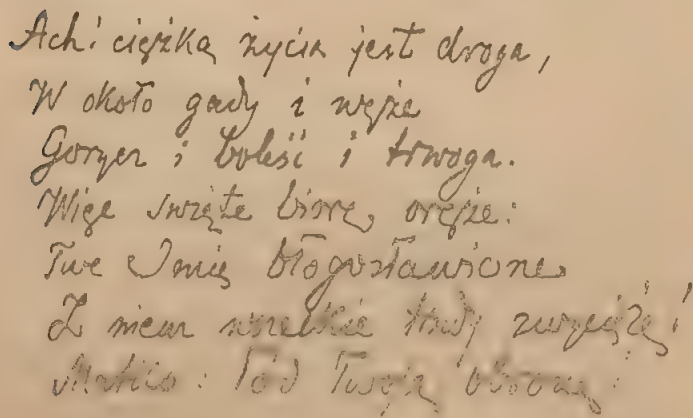 Ach! ciężką życia jest droga,
W około gady i węże
Gorycz i boleść i trwoga.
Więc święte biorę oręże:
Twe Imię błogosławione
Z niem wszelkie trudy zwyciężę!
Matko: Pod Twoją obronę!